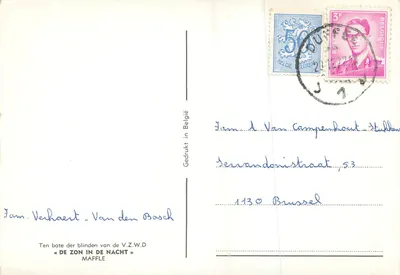 DUFFEL
50
3F
BELGIQUE
J 1 J
Gedrukt in België
Fam. t Van Campenhout-
Servandonistraat, 53
1130 Brussel
Fam. Verhaert-Van den Bosch
Ten bate der blinden van de V.Z.W.D
« DE ZON IN DE NACHT »
MAFFLE